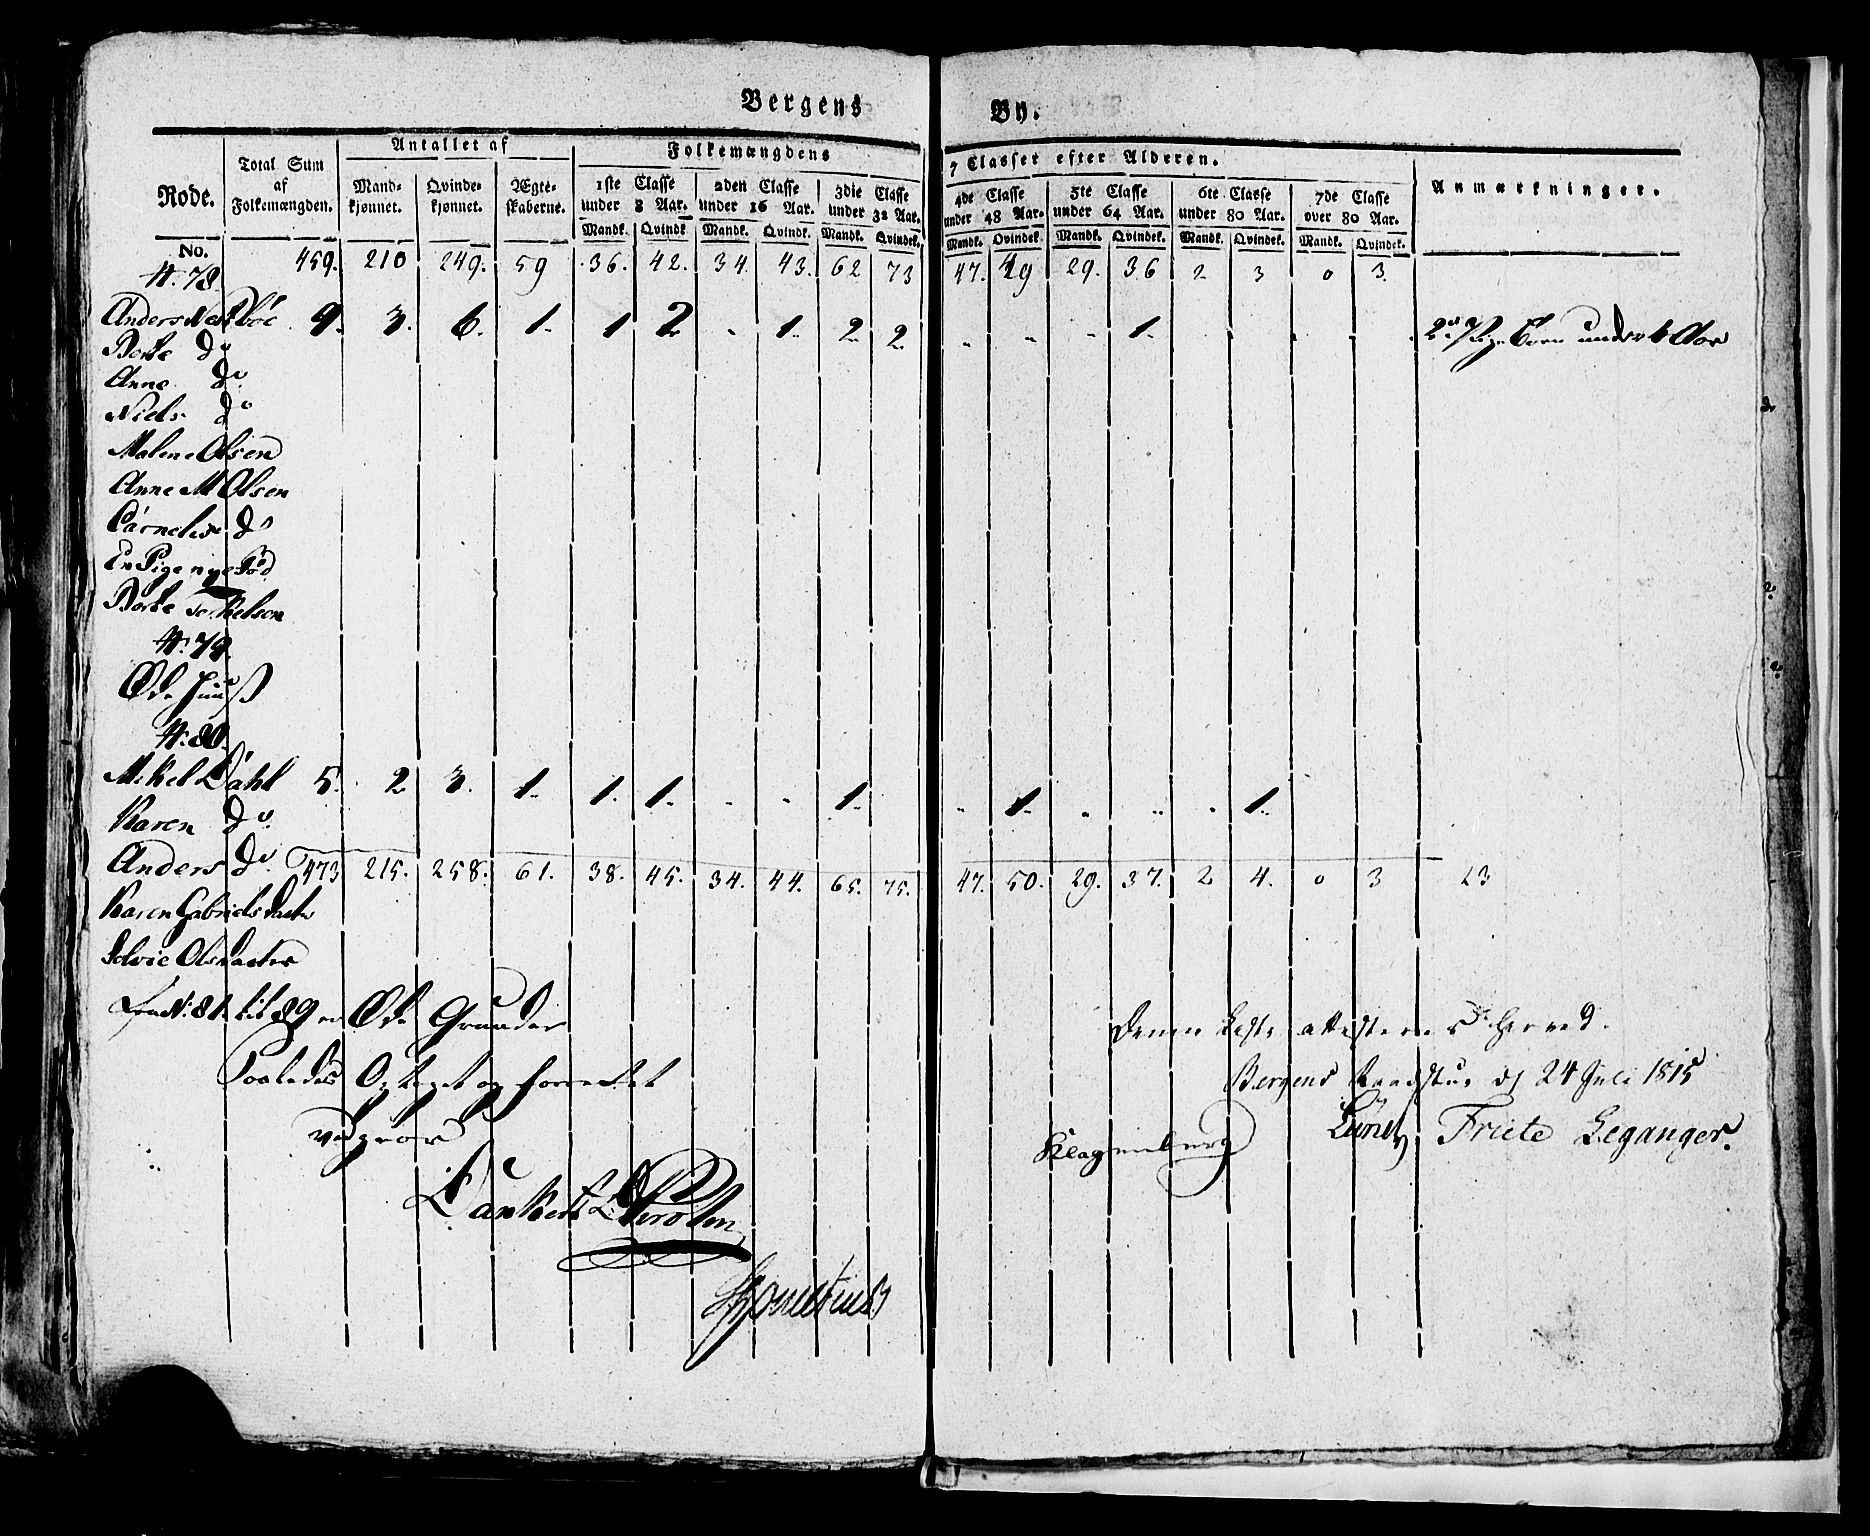 Bergens By.
Rode. Total Sum af Folkemængden. Antallet af Folkemængdens 7 Classer efter Alderen. Anmærkninger.
Mandkjønnet. Qvindekjønnet. Ægteskaberne. 1ste Classe under 8 Aar. 2den Classe under 16 Aar. 3die Classe under 32 Aar. 4de Classe under 48 Aar. 5te Classe under 64 Aar. 6te Classe under 80 Aar. 7de Classe over 80 Aar.
Mandk. Qvindk. Mandk. Qvindk. Mandk. Qvindek. Mandk. Qvindek. Mandk. Qvindek. Mandk. Qvindek. Mandk. Qvindek.
No. 459. 210 249. 59 36. 42. 34. 43. 62 73 47. 49 29. 36 2 3 0 3.
N: 78.
Anders 9. 3. 6. 1. 1 2 " 1. 2. 2. " " " 1. Børn under 1 Aar
Børte do
Anne do
Niels do
Malene Olsen
Anne M Olsen
Carnelia do
En Pige nye Fød
Børte Torkelsen
N: 79.
Øde Huuß
N: 80.
Mikel Dahl 5. 2 3. 1. 1. 1. " " 1. " 1. " " " 1.
Karen do
Anders do 473 215. 258. 61. 38. 45. 34. 44. 65. 75. 47. 50. 29. 37. 2 4. 0 3 23
Karen Gabrielsdatter
Solvie Olsdatter
Fra N: 81. til 89 er Øde Grunder
Saaledes Optaget og forrettet
Denne Liste attesteres herved.
Bergens Raadstue d 24 Juli 1815
Klagenberg Lüné Friele Leganger.